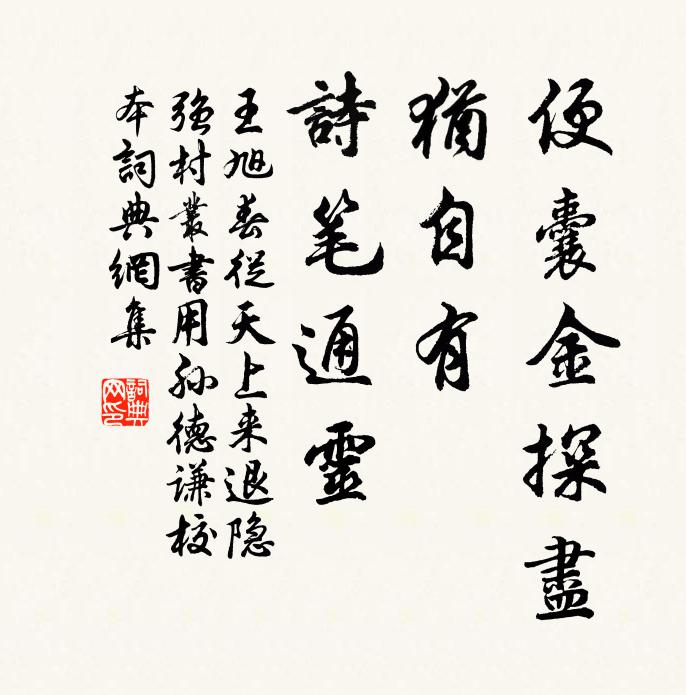 便囊金探盡
猶自有
詩笔通靈
王旭春從天上来退隐
強村叢書用孙德谦校
本詞典網集
詞典
网印